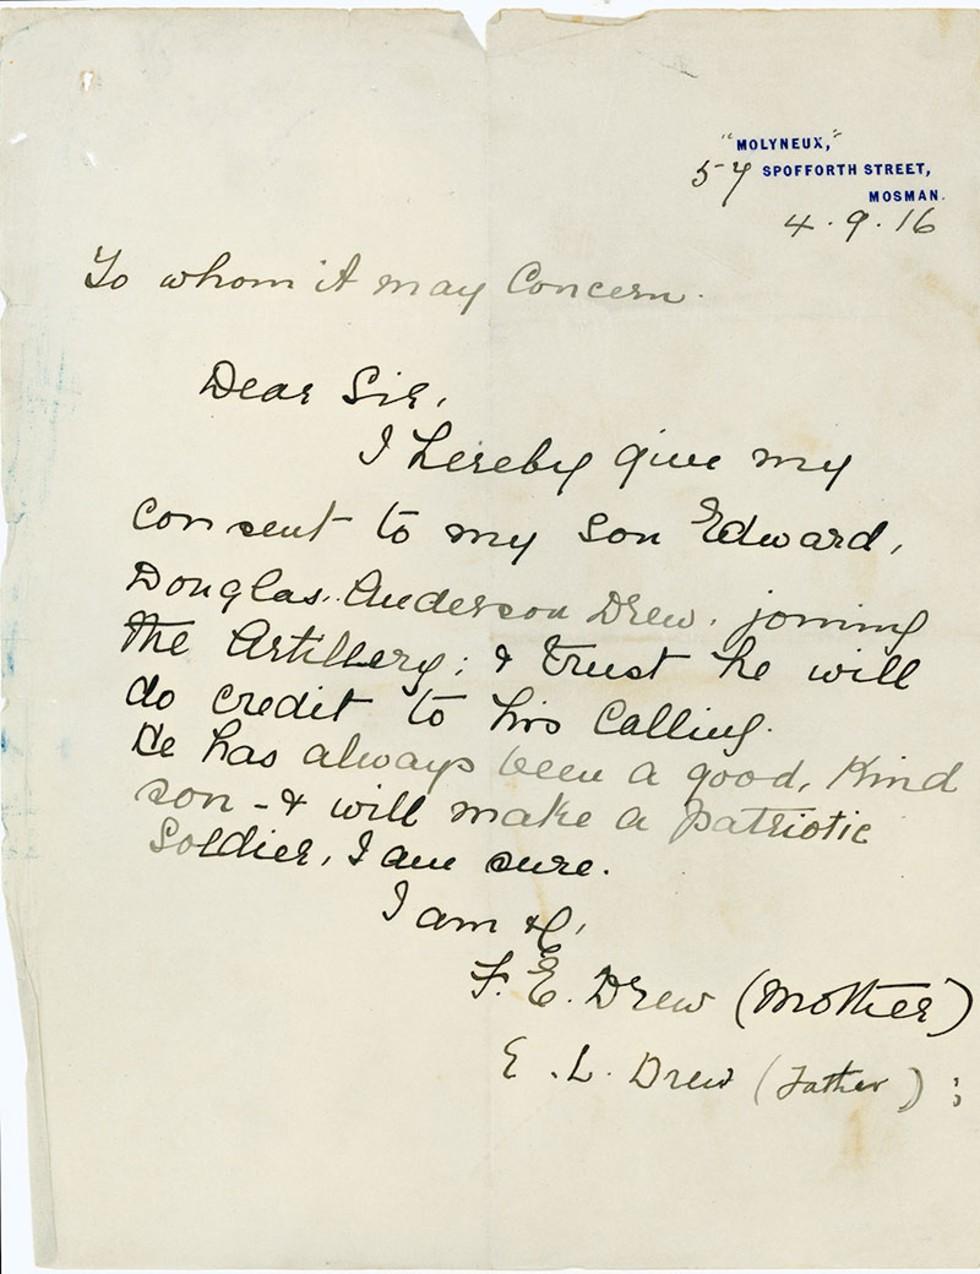 "MOLYNEUX,"
57 SPOFFORTH STREET,
MOSMAN.
4.9.16
To whom it may Concern.
Dear Sir,
I hereby give my
consent to my son Edward,
Douglas. Anderson Drew. joining
the Artillery; & trust he will
do credit to his Calling.
He has always been a good, Kind
son - & will make a patriotic
Soldier, I am sure.
I am &c,
F. E. Drew (Mother)
E. L. Drew (Father) ;